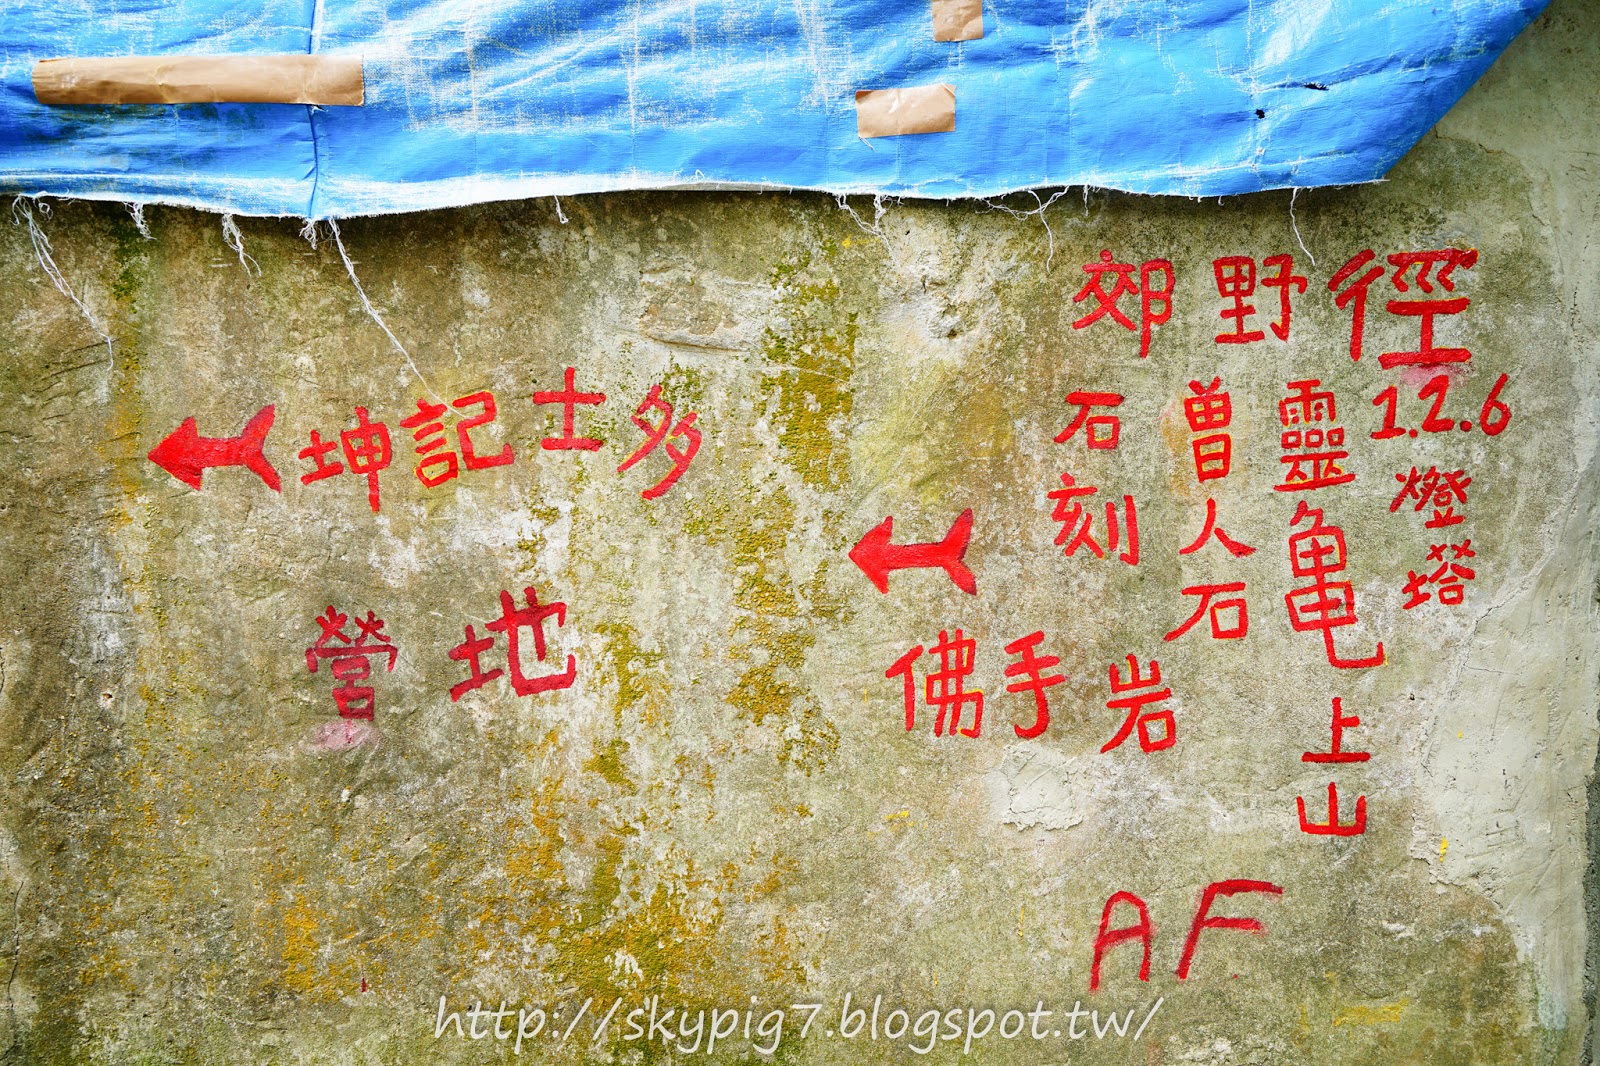 郊野徑
1.2.6
燈塔
靈亀上山
曽人石
石刻
佛手岩
坤記士多
營地
AF
http://skypig7.blogspot.tw/